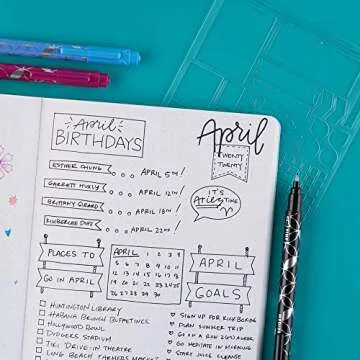 April
BIRTHDAYS
ESTHER CHUNG
APRIL 5TH!
GARRETT HUXLY
APRIL 12TH!
BRITTANY GIRARD
APRIL 18TH!
KIMBERLEE DUPS
APRIL 22ND!
April
TWENTY
TWENTY
IT'S
Aries
TIME
PLACES TO
GO IN APRIL
APRIL 1 2 3 4
5 6 7 8 9 10 11
12 13 14 15 16 17 18
19 20 21 22 23 24 25
26 27 28 29 30
APRIL
GOALS
HUNTINGTON LIBRARY
HABANA BRUNCH
HOLLYWOOD BOWL
DODGERS STADIUM
TIKI DRIVE-IN THEATER
LONG BEACH FARMERS MARKET
SIGN UP FOR KICKBOXING
PLAN SUMMER TRIP
GO ON A RUN
GO HIKING IN MORNING
START JUICE CLEANSE